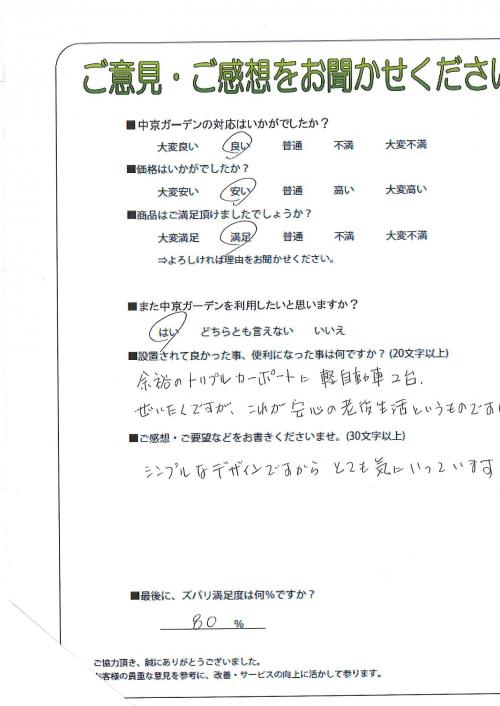 ご意見・ご感想をお聞かせください
■中京ガーデンの対応はいかがでしたか？
大変良い 良い 普通 不満 大変不満
■価格はいかがでしたか？
大変安い 安い 普通 高い 大変高い
■商品はご満足頂けましたでしょうか？
大変満足 満足 普通 不満 大変不満
⇒よろしければ理由をお聞かせください。
■また中京ガーデンを利用したいと思いますか？
はい どちらとも言えない いいえ
■設置されて良かった事、便利になった事は何ですか？(20文字以上)
余裕のトリプルカーポートに 軽自動車2台、
ぜいたくですが、これが安心の老後生活というものです
■ご感想・ご要望などをお書きくださいませ。(30文字以上)
シンプルなデザインですから とても気にいっています
■最後に、ズバリ満足度は何％ですか？
80 %
ご協力頂き、誠にありがとうございました。
お客様の貴重な意見を参考に、改善・サービスの向上に活かして参ります。